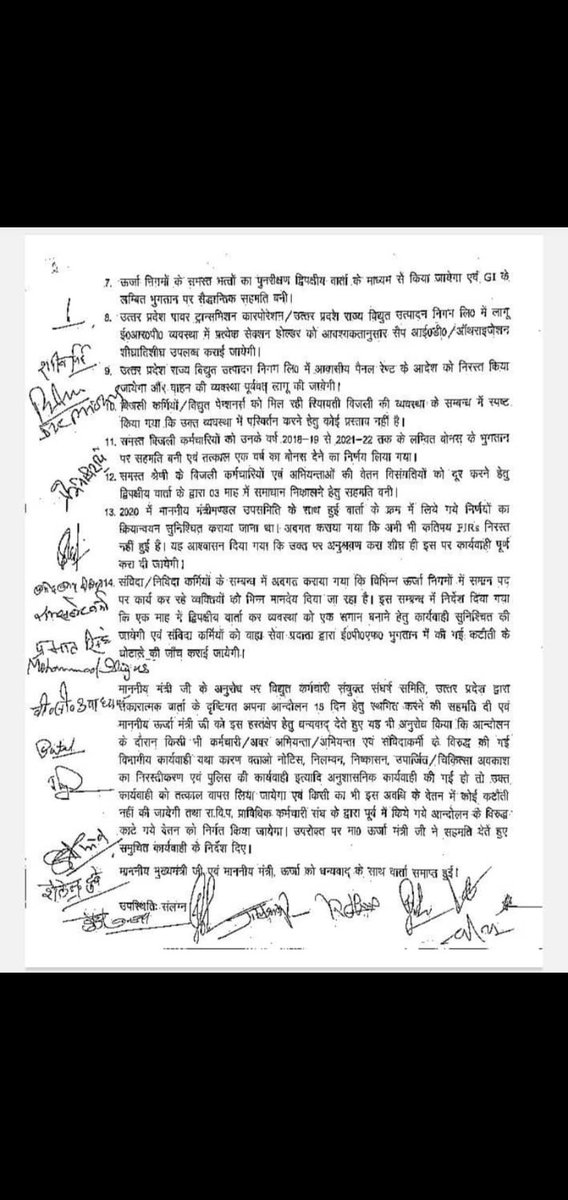 2
7. ऊर्जा निगमों के समस्त भत्तों का पुनरीक्षण द्विपक्षीय वार्ता के माध्यम से किया जायेगा एवं GI के
लम्बित भुगतान पर सैद्धान्तिक सहमति बनी।
8. उत्तर प्रदेश पावर ट्रान्समिशन कारपोरेशन/उत्तर प्रदेश राज्य विद्युत उत्पादन निगम लि0 में लागू
ई0आर0पी0 व्यवस्था में प्रत्येक सेक्शन होल्डर को आवश्यकतानुसार सैप आई0डी0/ऑथराइजेशन
शीघ्रातिशीघ्र उपलब्ध कराई जायेगी।
9. उत्तर प्रदेश राज्य विद्युत उत्पादन निगम लि0 में आवासीय पैनल रेण्ट के आदेश को निरस्त किया
जायेगा और वाहन की व्यवस्था पूर्ववत् लागू की जायेगी।
10. बिजली कर्मियों/विद्युत पेन्शनर्स को मिल रही रियायती बिजली की व्यवस्था के सम्बन्ध में स्पष्ट
किया गया कि उक्त व्यवस्था में परिवर्तन करने हेतु कोई प्रस्ताव नहीं है।
11. समस्त बिजली कर्मचारियों को उनके वर्ष 2018-19 से 2021-22 तक के लम्बित बोनस के भुगतान
पर सहमति बनी एवं तत्काल एक वर्ष का बोनस देने का निर्णय लिया गया।
12. समस्त श्रेणी के बिजली कर्मचारियों एवं अभियन्ताओं की वेतन विसंगतियों को दूर करने हेतु
द्विपक्षीय वार्ता के द्वारा 03 माह में समाधान निकालने हेतु सहमति बनी।
13. 2020 में माननीय मंत्रीमण्डल उपसमिति के साथ हुई वार्ता के क्रम में लिये गये निर्णयों का
क्रियान्वयन सुनिश्चित कराया जाना था। अवगत कराया गया कि अभी भी कतिपय FIRs निरस्त
नहीं हुई है। यह आश्वासन दिया गया कि उक्त पर अनुश्रवण करा शीघ्र ही इस पर कार्यवाही पूर्ण
करा दी जायेगी।
14. संविदा/निविदा कर्मियों के सम्बन्ध में अवगत कराया गया कि विभिन्न ऊर्जा निगमों में समान पद
पर कार्य कर रहे व्यक्तियों को भिन्न मानदेय दिया जा रहा है। इस सम्बन्ध में निर्देश दिया गया
कि एक माह में द्विपक्षीय वार्ता कर व्यवस्था को एक समान बनाने हेतु कार्यवाही सुनिश्चित की
जायेगी एवं संविदा कर्मियों को वाह्य सेवा प्रदाता द्वारा ई0पी0एफ0 भुगतान में की गई कटौती के
घोटाले की जॉच कराई जायेगी।
Mohammad
माननीय मंत्री जी के अनुरोध पर विद्युत कर्मचारी संयुक्त संघर्ष समिति, उत्तर प्रदेश द्वारा
सकारात्मक वार्ता के दृष्टिगत अपना आन्दोलन 15 दिन हेतु स्थगित करने की सहमति दी एवं
माननीय ऊर्जा मंत्री जी को इस हस्तक्षेप हेतु धन्यवाद देते हुए यह भी अनुरोध किया कि आन्दोलन
के दौरान किसी भी कर्मचारी/अवर अभियन्ता/अभियन्ता एवं संविदाकर्मी के विरुद्ध की गई
विभागीय कार्यवाही यथा कारण बताओ नोटिस, निलम्बन, निष्कासन, उपार्जित/चिकित्सा अवकाश
का निरस्तीकरण एवं पुलिस की कार्यवाही इत्यादि अनुशासनिक कार्यवाही की गई हो तो उक्त
कार्यवाही को तत्काल वापस लिया जायेगा एवं किसी का भी इस अवधि के वेतन में कोई कटौती
नहीं की जायेगी तथा रा.वि.प. प्राविधिक कर्मचारी संघ के द्वारा पूर्व में किये गये आन्दोलन के विरुद्ध
काटे गये वेतन को निर्गत किया जायेगा। उपरोक्त पर मा0 ऊर्जा मंत्री जी ने सहमति देते हुए
समुचित कार्यवाही के निर्देश दिए।
माननीय मुख्यमंत्री जी एवं माननीय मंत्री, ऊर्जा को धन्यवाद के साथ वार्ता समाप्त हुई।
उपस्थिति: संलग्न